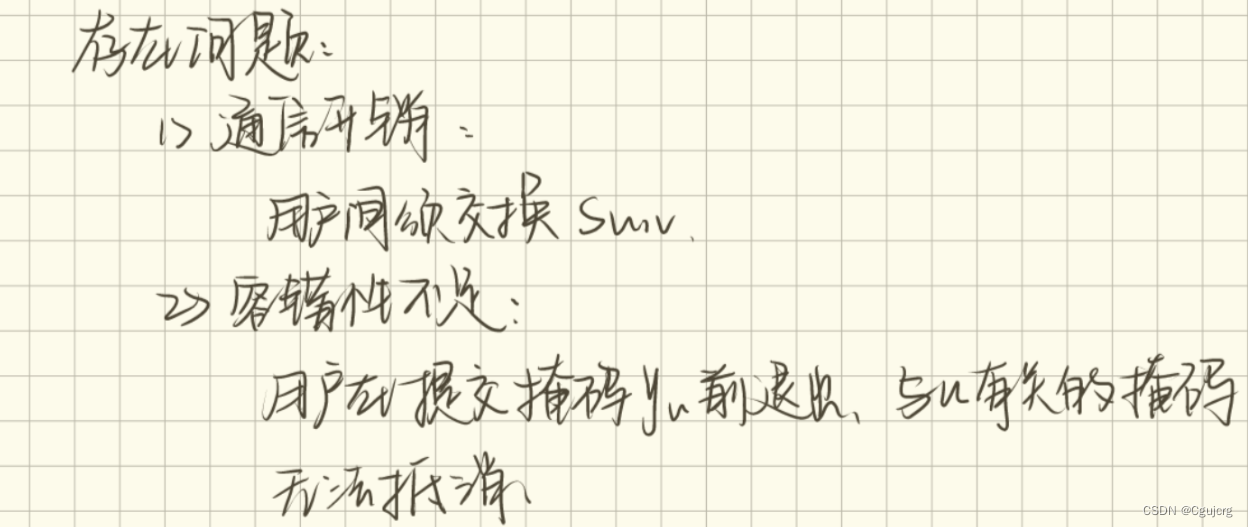 存在问题：
1> 通信开销：
用户间须交换 Su,v.
2> 容错性不足：
用户在提交掩码 yu 前退出、与u有关的掩码
无法抵消.
CSDN @Cgujerg